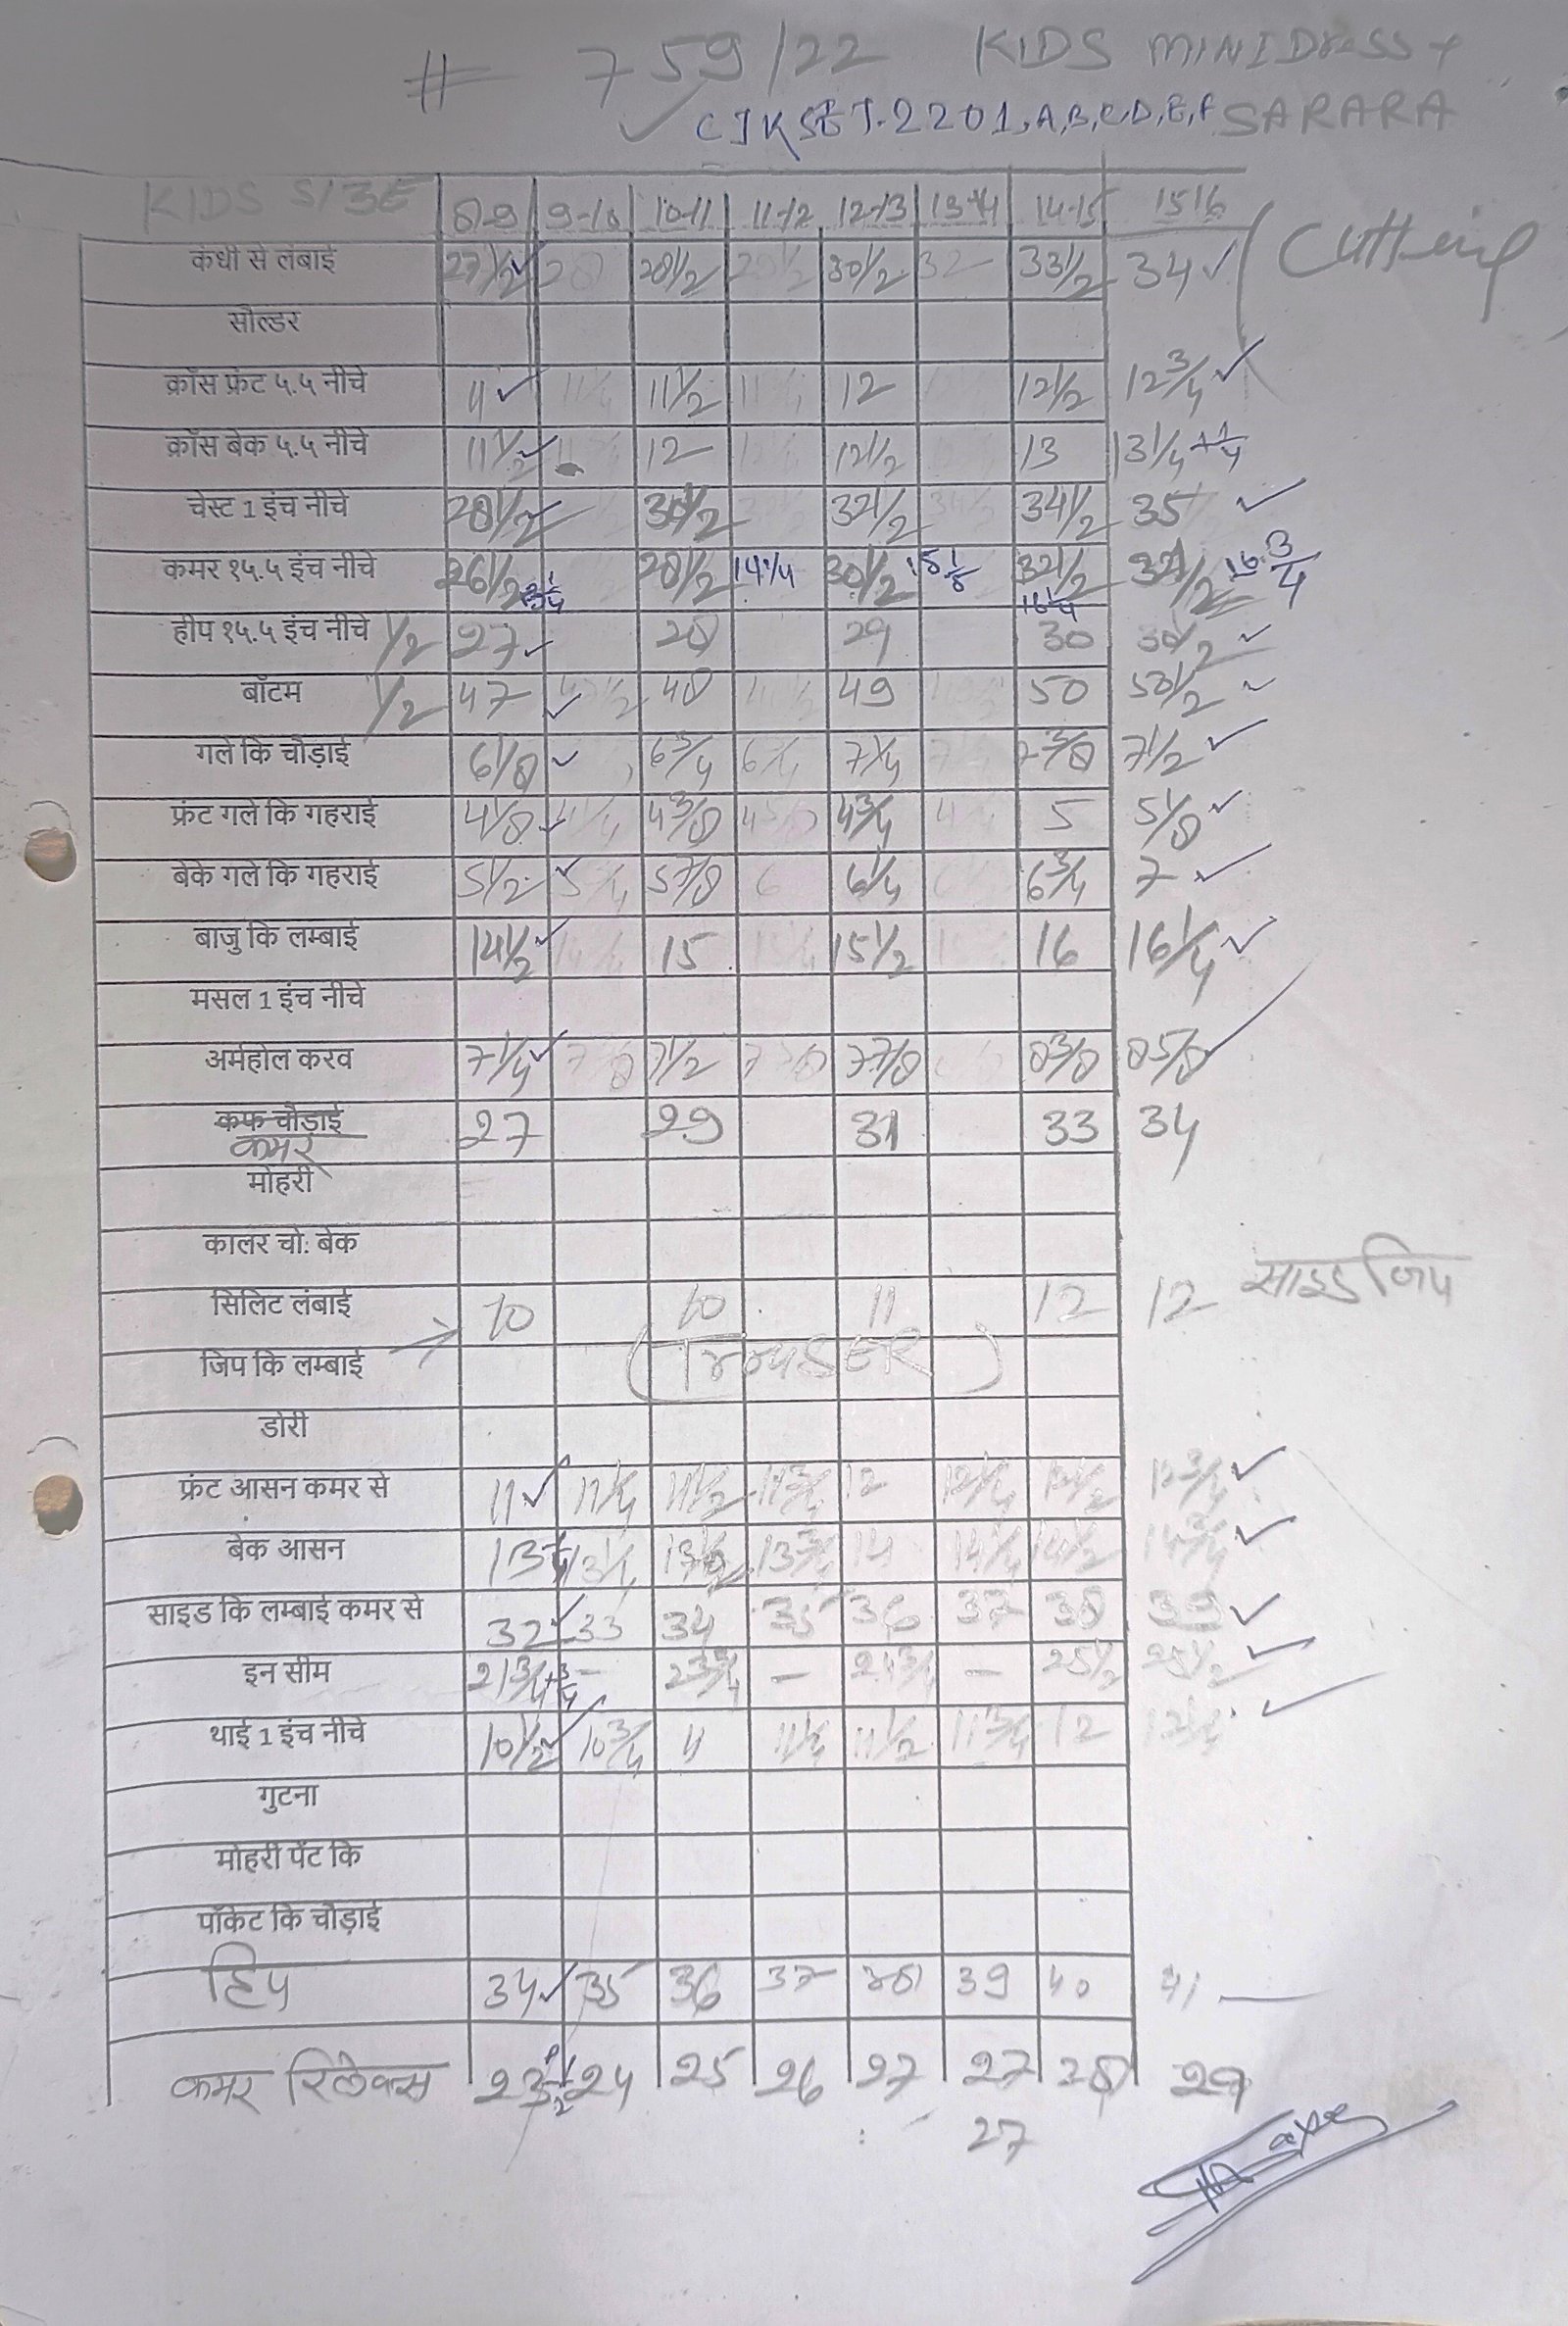 # 759/22 KIDS MINIDress +
CJKSET-2201,A,B,C,D,E,F SARARA
KIDS SIZE 8-9 9-10 10-11 11-12 12-13 13-14 14-15 15 16
कंधी से लंबाई 27 1/2 28 28 1/2 30 1/2 32 33 1/2 34 Cutting
सौल्डर
क्रॉस फ्रंट ५.५ नीचे 11 11 1/4 11 1/2 12 12 1/2 12 3/4
क्रॉस बेक ५.५ नीचे 11 1/2 12 12 1/2 13 13 1/4 + 1/4
चेस्ट 1 इंच नीचे 28 1/2 30 1/2 32 1/2 34 1/2 35
कमर १५.५ इंच नीचे 26 1/2 28 1/2 14 1/4 30 1/2 15 1/8 32 1/2 16 1/4 16 3/4
हीप १५.५ इंच नीचे 1/2 27 28 29 30 30 1/2
बॉटम 1/2 47 47 1/2 48 49 50 50 1/2
गले कि चौड़ाई 6 1/8 6 3/4 7 1/4 7 3/8 7 1/2
फ्रंट गले कि गहराई 4 1/8 4 1/4 4 3/8 4 5/8 4 3/4 5 5 1/8
बेके गले कि गहराई 5 1/2 5 3/4 5 7/8 6 6 1/4 6 3/4 7
बाजु कि लम्बाई 14 1/2 15 15 1/2 16 16 1/4
मसल 1 इंच नीचे
अर्महोल करव 7 1/4 7 1/2 7 7/8 8 3/8 8 5/8
कफ चौड़ाई
कमर 27 29 31 33 34
मोहरी
कालर चो: बेक
सिलिट लंबाई 10 10 11 12 12 साइड जिप
जिप कि लम्बाई (TrouSER)
डोरी
फ्रंट आसन कमर से 11 11 1/4 11 1/2 11 3/4 12 12 1/4 12 1/2 12 3/4
बेक आसन 13 13 1/4 13 1/2 13 3/4 14 14 1/4 14 1/2 14 3/4
साइड कि लम्बाई कमर से 32 33 34 35 36 37 38 39
इन सीम 21 3/4 + 3/4 – 23 3/4 – 24 3/4 – 25 1/2 25 1/2
थाई 1 इंच नीचे 10 1/2 10 3/4 11 11 1/4 11 1/2 11 3/4 12 12 1/4
गुटना
मोहरी पेंट कि
पॉकेट कि चौड़ाई
हिप 34 35 36 37 38 39 40 41
कमर रिलेक्स 23 1/2 24 25 26 27 27 28 29
27